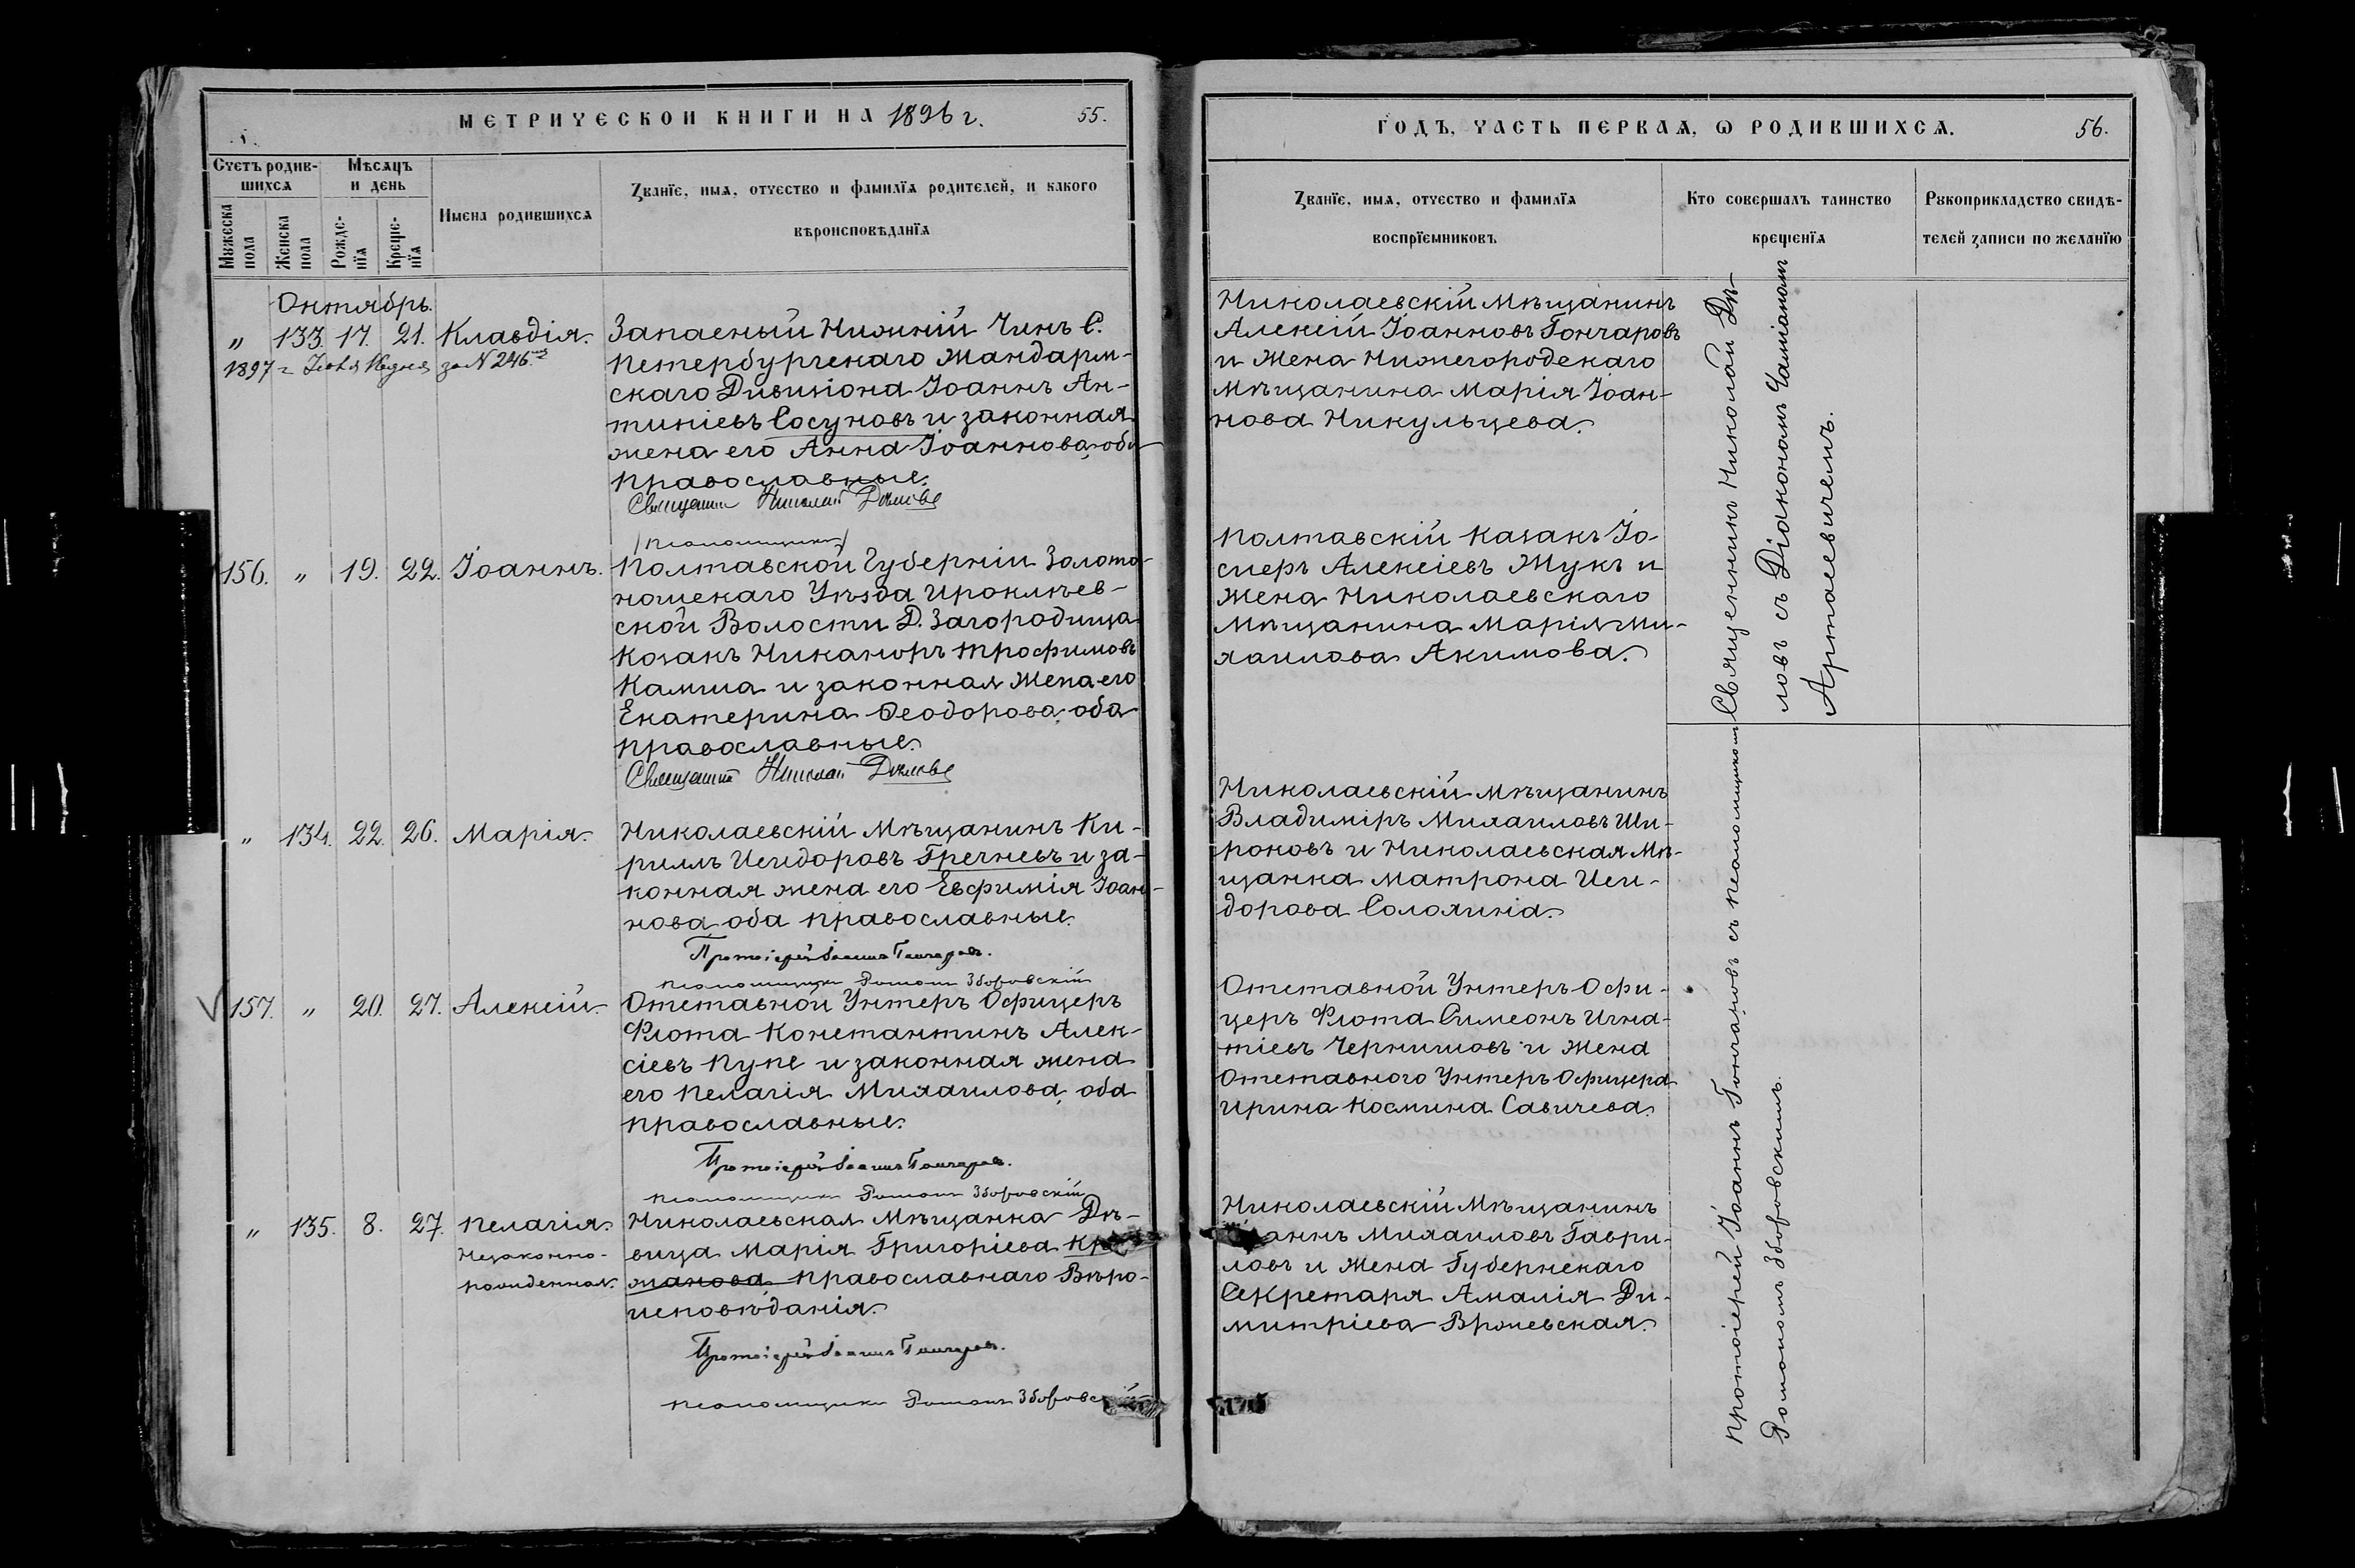 МЕТРИЧЕСКОЙ КНИГИ НА 1896 г. 55.
Счетъ родив-
шихся
Мѣсяцъ
и день
Мужеска
пола
Женска
пола
Рожде-
нїя
Креще-
нїя
Имена родившихся
Званїе, имя, отчество и фамилїя родителей, и какого
вѣроисповѣданїя
Октябрь.
„ 133. 17. 21. Клавдія.
1897 г за N 246
Запасный Нижній Чинъ С.
Петербургскаго Жандарм-
скаго Дивизіона Іоаннъ Ан-
типіевъ Сосуновъ и законная
жена его Анна Іоаннова, оба
православные.
Священникъ Николай
156. „ 19. 22. Іоаннъ.
Псаломщикъ
Полтавской Губерніи Золото-
ношскаго Уѣзда Ироклѣев-
ской Волости Д. Загородища
Козакъ Никаноръ Трофимовъ
Камша и законная жена его
Екатерина Ѳеодорова, оба
православные.
Священникъ Николай
„ 134. 22. 26. Марія.
Николаевскій Мѣщанинъ Ки-
риллъ Исидоровъ Гречневъ и за-
конная жена его Евфимія Іоан-
нова, оба православные.
Протоіерей Іоаннъ Гончаровъ.
Псаломщикъ Романъ Зборовскій
157. „ 20. 27. Алексій.
Отставной Унтеръ Офицеръ
Флота Константинъ Алек-
сіевъ Купе и законная жена
его Пелагія Михаилова, оба
православные.
Протоіерей Іоаннъ Гончаровъ.
Псаломщикъ Романъ Зборовскій
„ 135. 8. 27. Пелагія.
Незаконно-
рожденная.
Николаевская Мѣщанка Дѣ-
вица Марія Григоріева
жанова, православнаго Вѣро-
исповѣданія.
Протоіерей Іоаннъ Гончаровъ.
Псаломщикъ Романъ
ГОДЪ, ЧАСТЬ ПЕРВАЯ, Ѡ РОДИВШИХСЯ. 56.
Званїе, имя, отчество и фамилїя
воспрїемниковъ
Кто совершалъ таинство
крещенїя
Рукоприкладство свидѣ-
телей записи по желанїю
Николаевскій Мѣщанинъ
Алексій Іоанновъ Гончаровъ
и Жена Нижегородскаго
Мѣщанина Марія Іоан-
нова Никульцева.
Полтавскій Казакъ Іо-
сифъ Алексіевъ Жукъ и
Жена Николаевскаго
Мѣщанина Марія Ми-
хаилова Акимова.
Николаевскій Мѣщанинъ
Владиміръ Михаиловъ Ши-
роковъ и Николаевская Мѣ-
щанка Матрона Иси-
дорова Солохина.
Отставной Унтеръ Офи-
церъ Флота Симеонъ Игна-
тіевъ Чернишовъ и Жена
Отставного Унтеръ Офицера
Ирина Космина Савичева.
Николаевскій Мѣщанинъ
Михаиловъ Гаври-
ловъ и Жена Губернскаго
Секретаря Амалія Ди-
митріева
Священникъ Николай Дѣ-
ловъ съ Діакономъ
Артаевичемъ.
Протоіерей Іоаннъ Гончаровъ съ Псаломщикомъ
Романомъ Зборовскимъ.